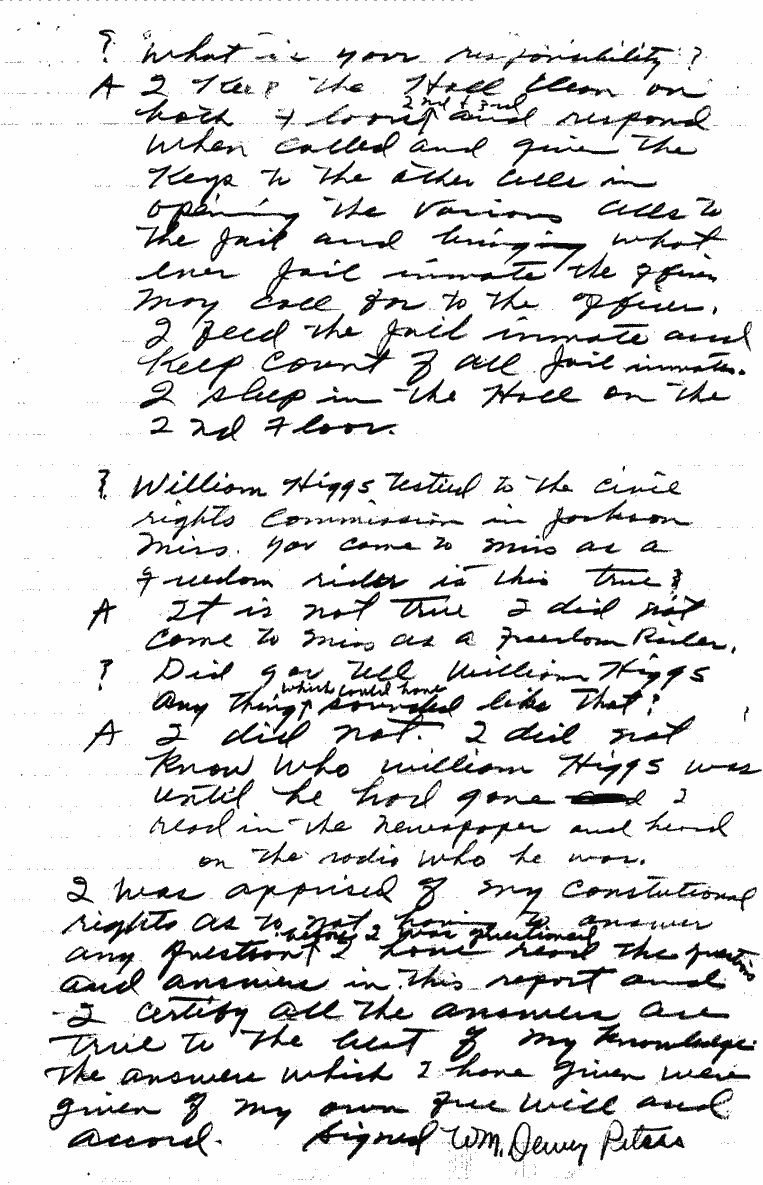 ? What is your responsibility?
A I Keep the Hall Clean on
both Floors, 2nd + 3rd and respond
When called and given the
Keys to the other cells in
opening the various cells to
the Jail and bringing what
ever Jail inmate the officer
may call for to the officer.
I feed the Jail inmate and
Keep Count of all Jail inmates.
I sleep in the Hall on the
2nd Floor.
? William Higgs testied to the civil
rights Commission in Jackson
Miss. you came to Miss as a
Freedom rider is this true?
A It is not true I did not
come to Miss as a Freedom Rider.
? Did you tell William Higgs
any thing which could have sounded like that?
A I did not. I did not
Know who William Higgs was
until he had gone I
read in the newspaper and heard
on the radio who he was.
I was apprised of my Constutional
rights as to not having to answer
any question before I was questioned I have read the questions
and answers in this report and
I certify all the answers are
true to the best of my knowledge.
The answers which I have given were
given of my own free will and
accord. Signed Wm. Dewey Peters